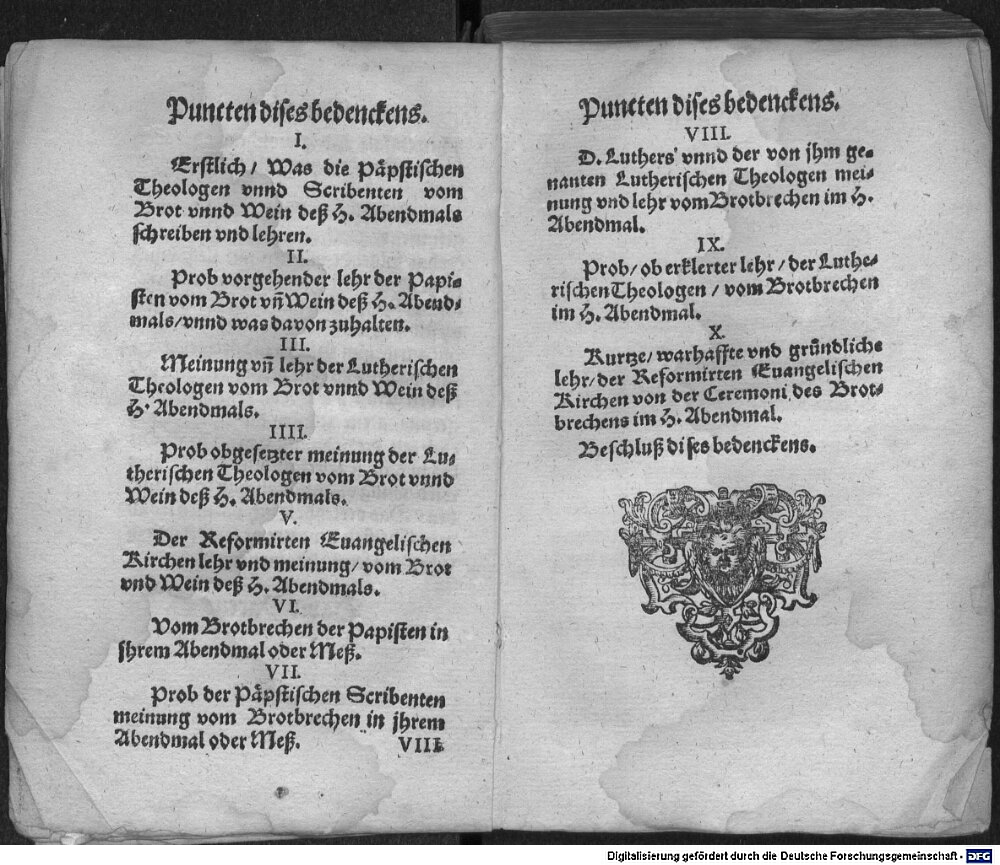 Puncten dises bedenckens.
I.
Erstlich/ Was die Päpstischen
Theologen vnnd Scribenten vom
Brot vnnd Wein deß H. Abendmals
schreiben vnd lehren.
II.
Prob vorgehender lehr der Papi-
sten vom Brot vñ Wein deß H. Abend-
mals/vnnd was davon zuhalten.
III.
Meinung vñ lehr der Lutherischen
Theologen vom Brot vnnd Wein deß
H. Abendmals.
IIII.
Prob obgesetzter meinung der Lu-
therischen Theologen vom Brot vnnd
Wein deß H. Abendmals.
V.
Der Reformirten Euangelischen
Kirchen lehr vnd meinung/ vom Brot
vnd Wein deß H. Abendmals.
VI.
Vom Brotbrechen der Papisten in
jhrem Abendmal oder Meß.
VII.
Prob der Päpstischen Scribenten
meinung vom Brotbrechen in jhrem
Abendmal oder Meß.
VIII
Puncten dises bedenckens.
VIII.
D. Luthers vnnd der von jhm ge-
nanten Lutherischen Theologen mei-
nung vnd lehr vom Brotbrechen im H.
Abendmal.
IX.
Prob/ ob erklerter lehr/ der Luthe-
rischen Theologen/ vom Brotbrechen
im H. Abendmal.
X.
Kurtze/ warhaffte vnd gründliche
lehr/ der Reformirten Euangelischen
Kirchen von der Ceremoni des Brot-
brechens im H. Abendmal.
Beschluß dises bedenckens.
Digitalisierung gefördert durch die Deutsche Forschungsgemeinschaft - DFG